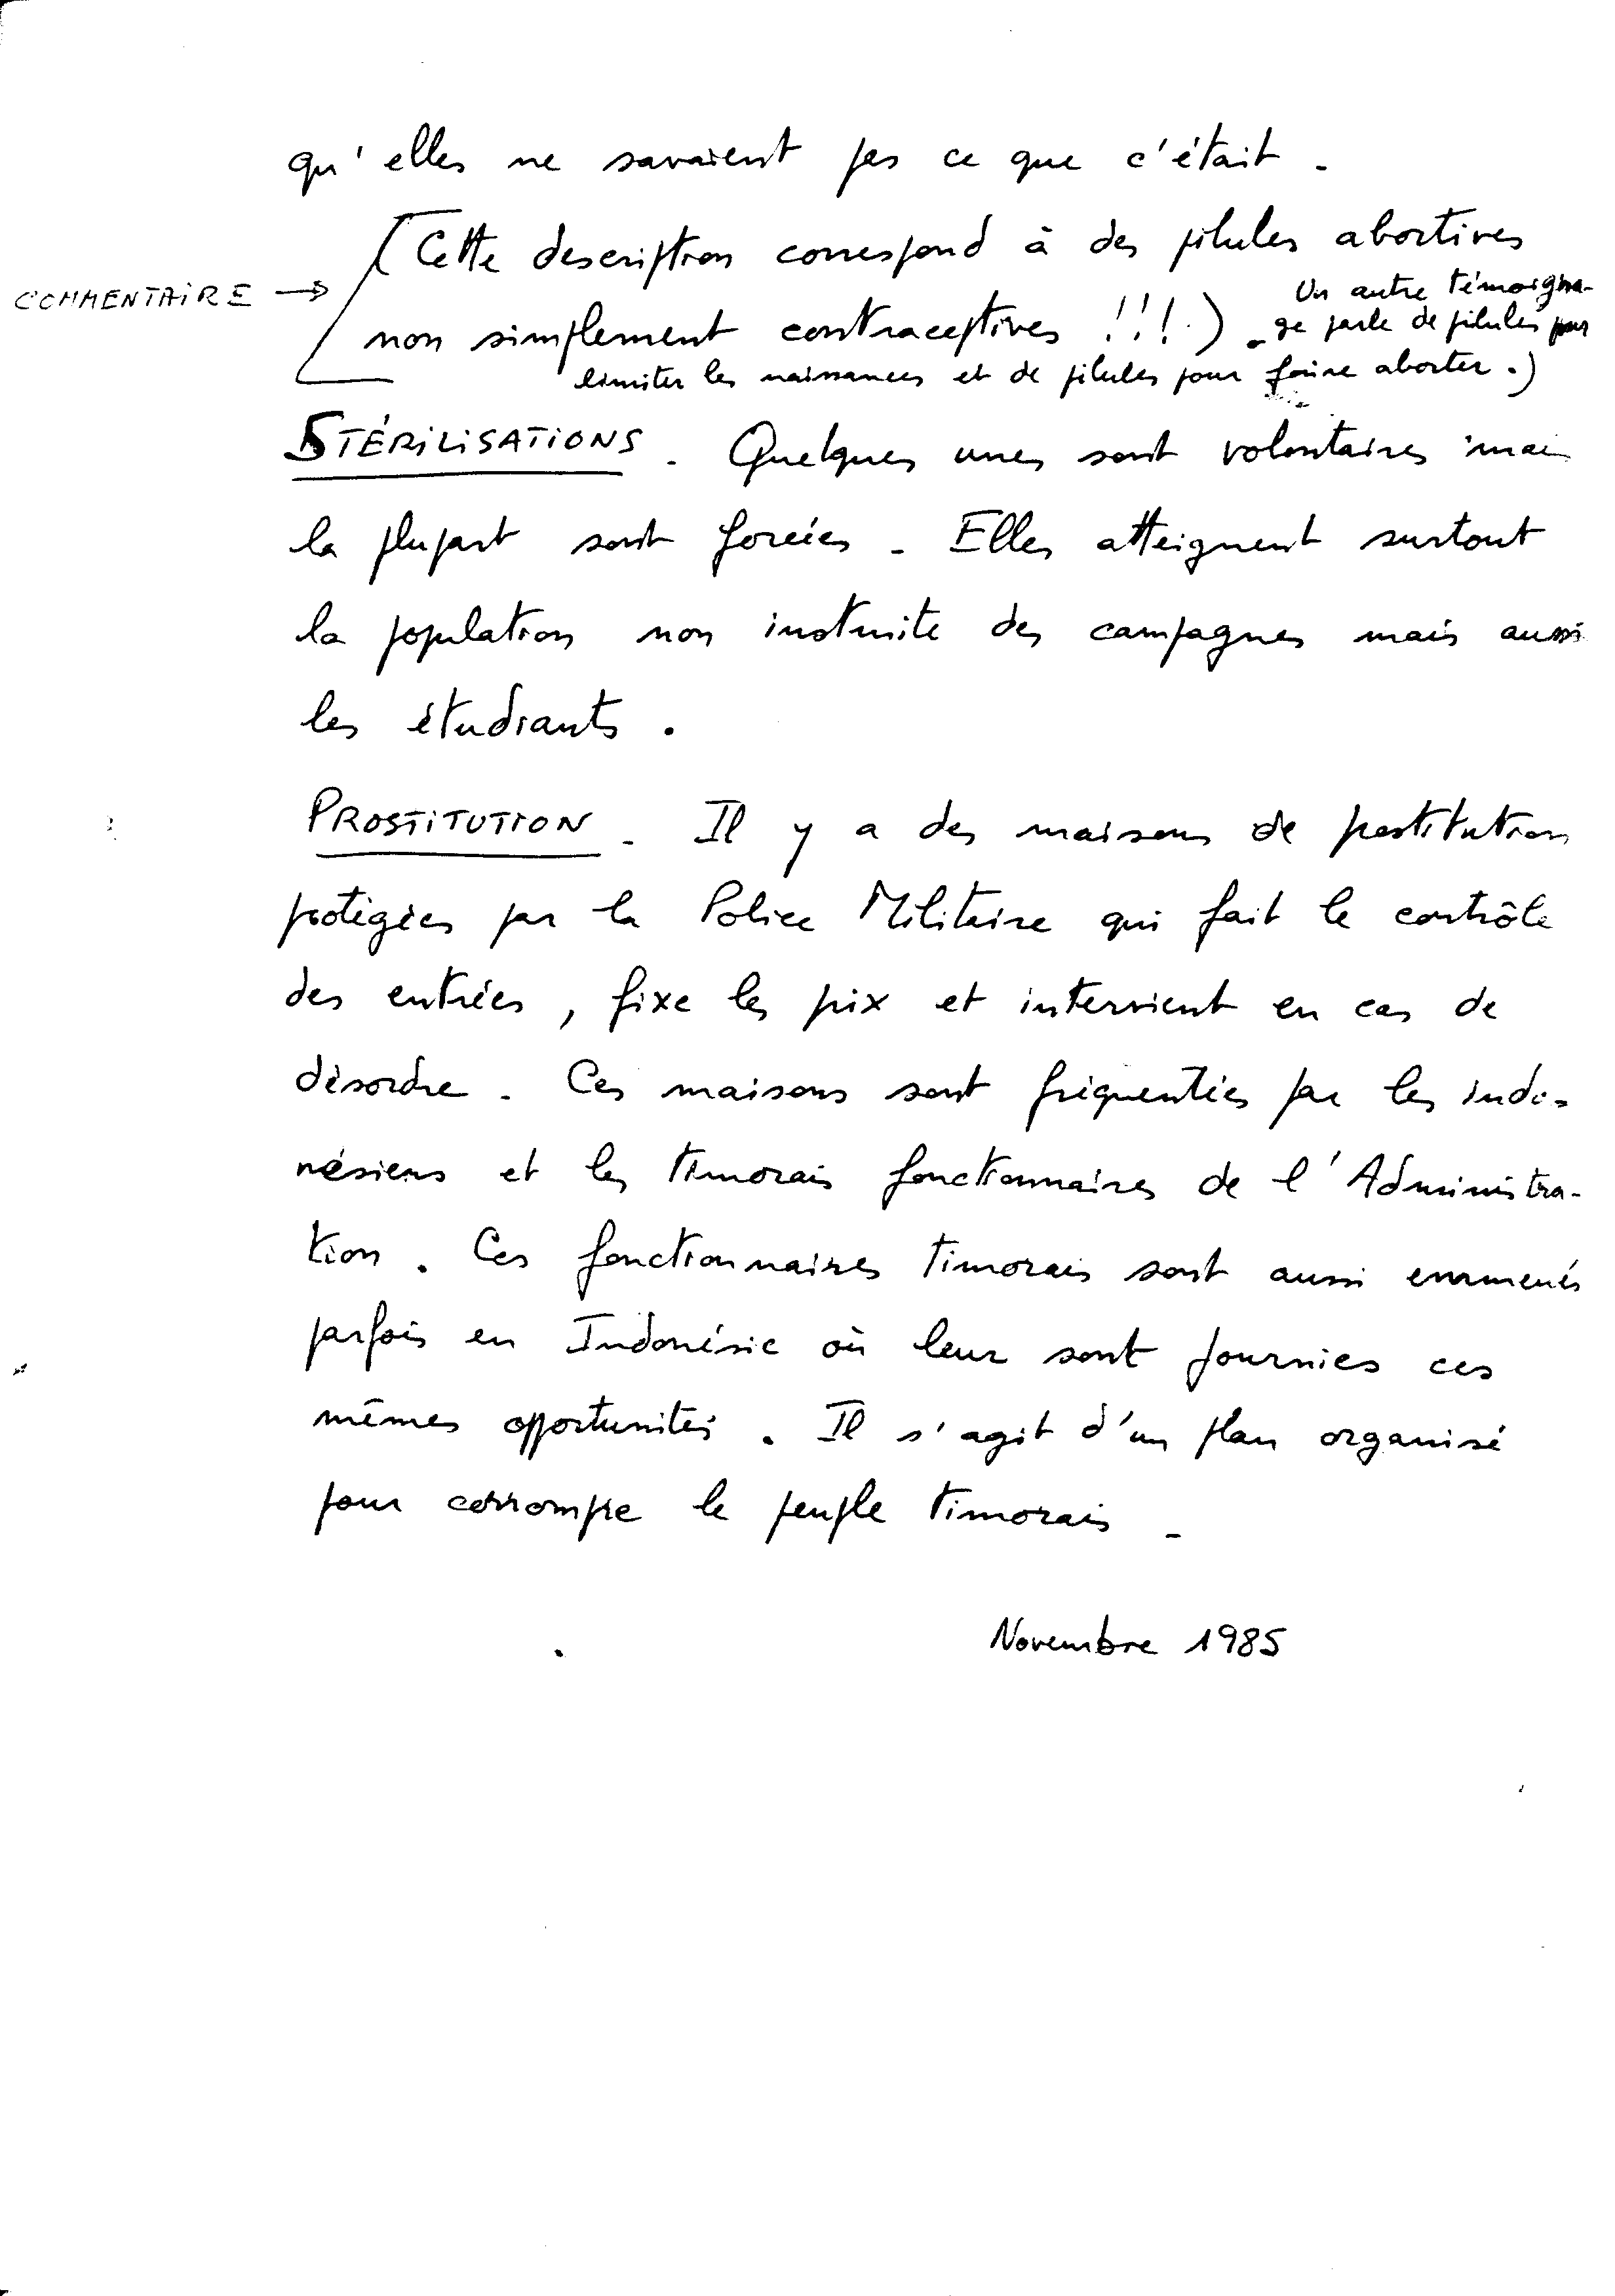 qu'elles ne savaient pas ce que c'était.
(Cette description correspond à des pilules abortives
COMMENTAIRE →
non simplement contraceptives !!!). Un autre témoigna-
ge parle de pilules pour
limiter les naissances et de pilules pour faire aborter.)
STÉRILISATIONS. Quelques unes sont volontaires mais
la plupart sont forcées. Elles atteignent surtout
la population non instruite des campagnes mais aussi
les étudiants.
PROSTITUTION. Il y a des maisons de prostitution
protégées par la Police Militaire qui fait le contrôle
des entrées, fixe les prix et intervient en cas de
désordre. Ces maisons sont fréquentées par les indo-
nésiens et les timorais fonctionnaires de l'Administra-
tion. Ces fonctionnaires timorais sont aussi emmenés
parfois en Indonésie où leur sont fournies ces
mêmes opportunités. Il s'agit d'un plan organisé
pour corrompre le peuple timorais.
Novembre 1985